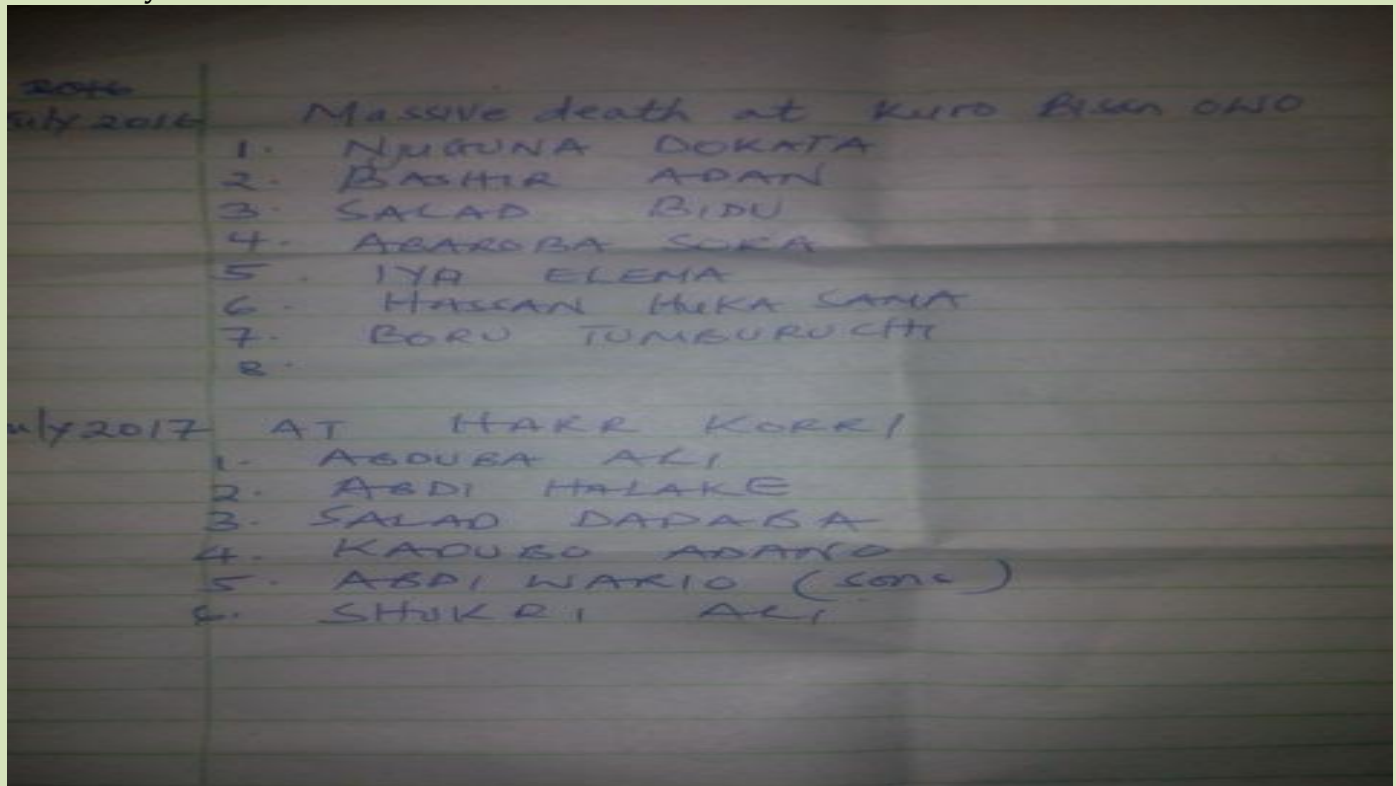 2016
July 2016 Massive death at Kuro Bisan OWO
1. NUGUNA DOKATA
2. BASHIR ADAN
3. SALAD BIDU
4. ABAROBA SORA
5. IYA ELEMA
6. HASSAN HUKA SAMA
7. BORU TUMBURUCHI
8.
uly 2017 AT HARR KORRI
1. ABDUBA ALI
2. ABDI HALAKE
3. SALAD DADABA
4. KADUBO ADANO
5. ABDI WARIO (sons)
6. SHUKRI ALI